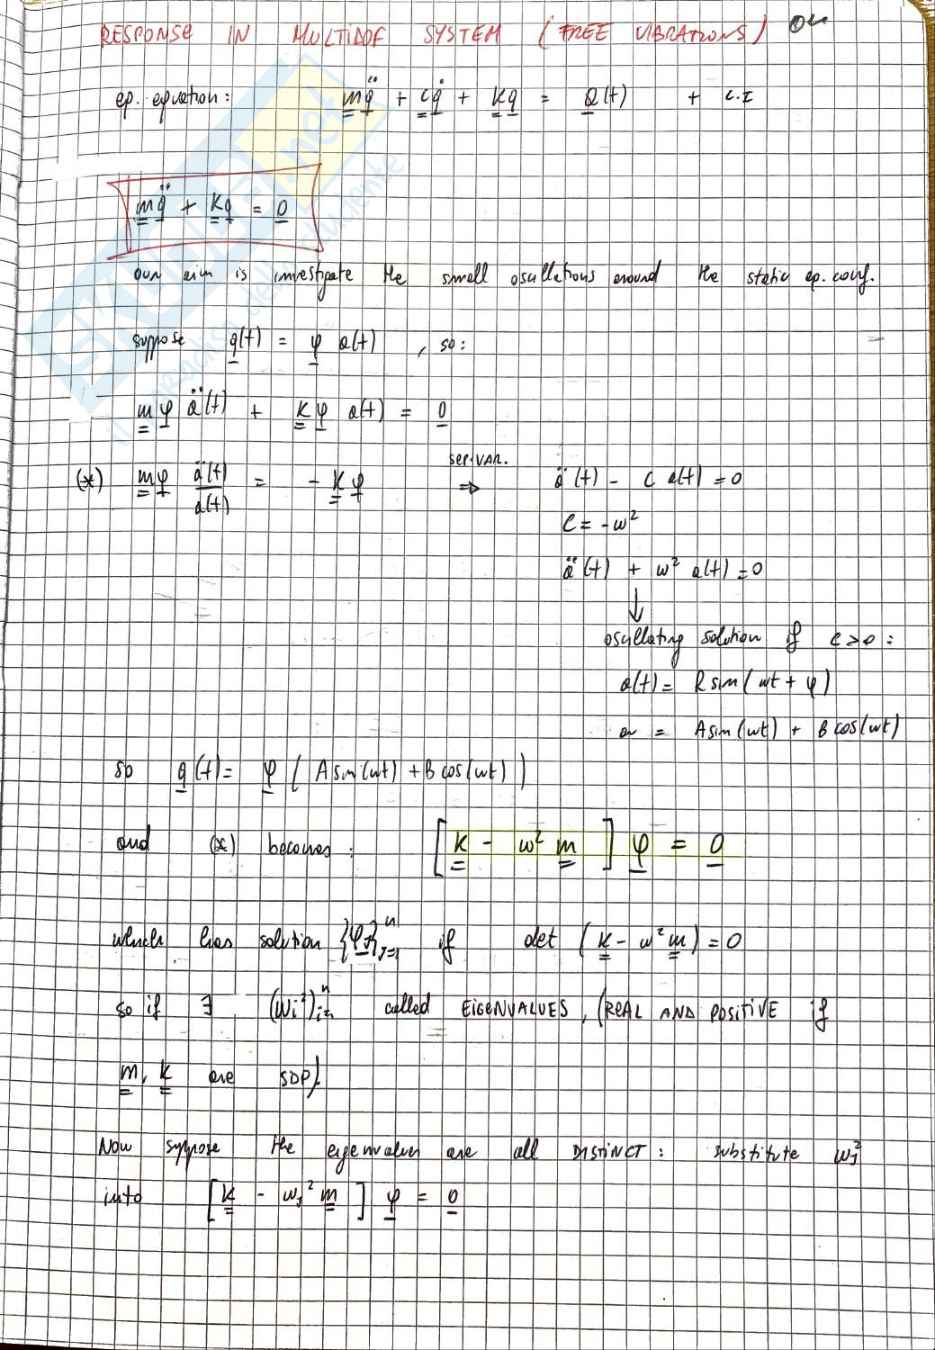 RESPONSE IN MULTIDOF SYSTEM (FREE VIBRATIONS) 04
eq. equation: m q̈ + c q̇ + K q = Q(t) + C.I
m q̈ + K q = 0
our aim is investigate the small oscillations around the static eq. conf.
suppose q(t) = φ a(t) , so:
m φ ä(t) + K φ a(t) = 0
(*) m φ ä(t)/a(t) = - K φ sep. VAR. ⇒ ä(t) - C a(t) = 0
C = -ω²
ä(t) + ω² a(t) = 0
↓
oscillating solution if C>0 :
a(t) = R sin(ωt + φ)
or = A sin(ωt) + B cos(ωt)
so q(t) = φ ( A sin(ωt) + B cos(ωt) )
and (*) becomes : [ K - ω² m ] φ = 0
which has solution {φⱼ}ⁿⱼ₌₁ if det ( K - ω² m ) = 0
so if ∃ (ωᵢ²)ⁿ called EIGENVALUES, (REAL AND POSITIVE if
m, K are SDP)
Now suppose the eigenvalues are all DISTINCT : substitute ωⱼ²
into [ K - ωⱼ² m ] φ = 0